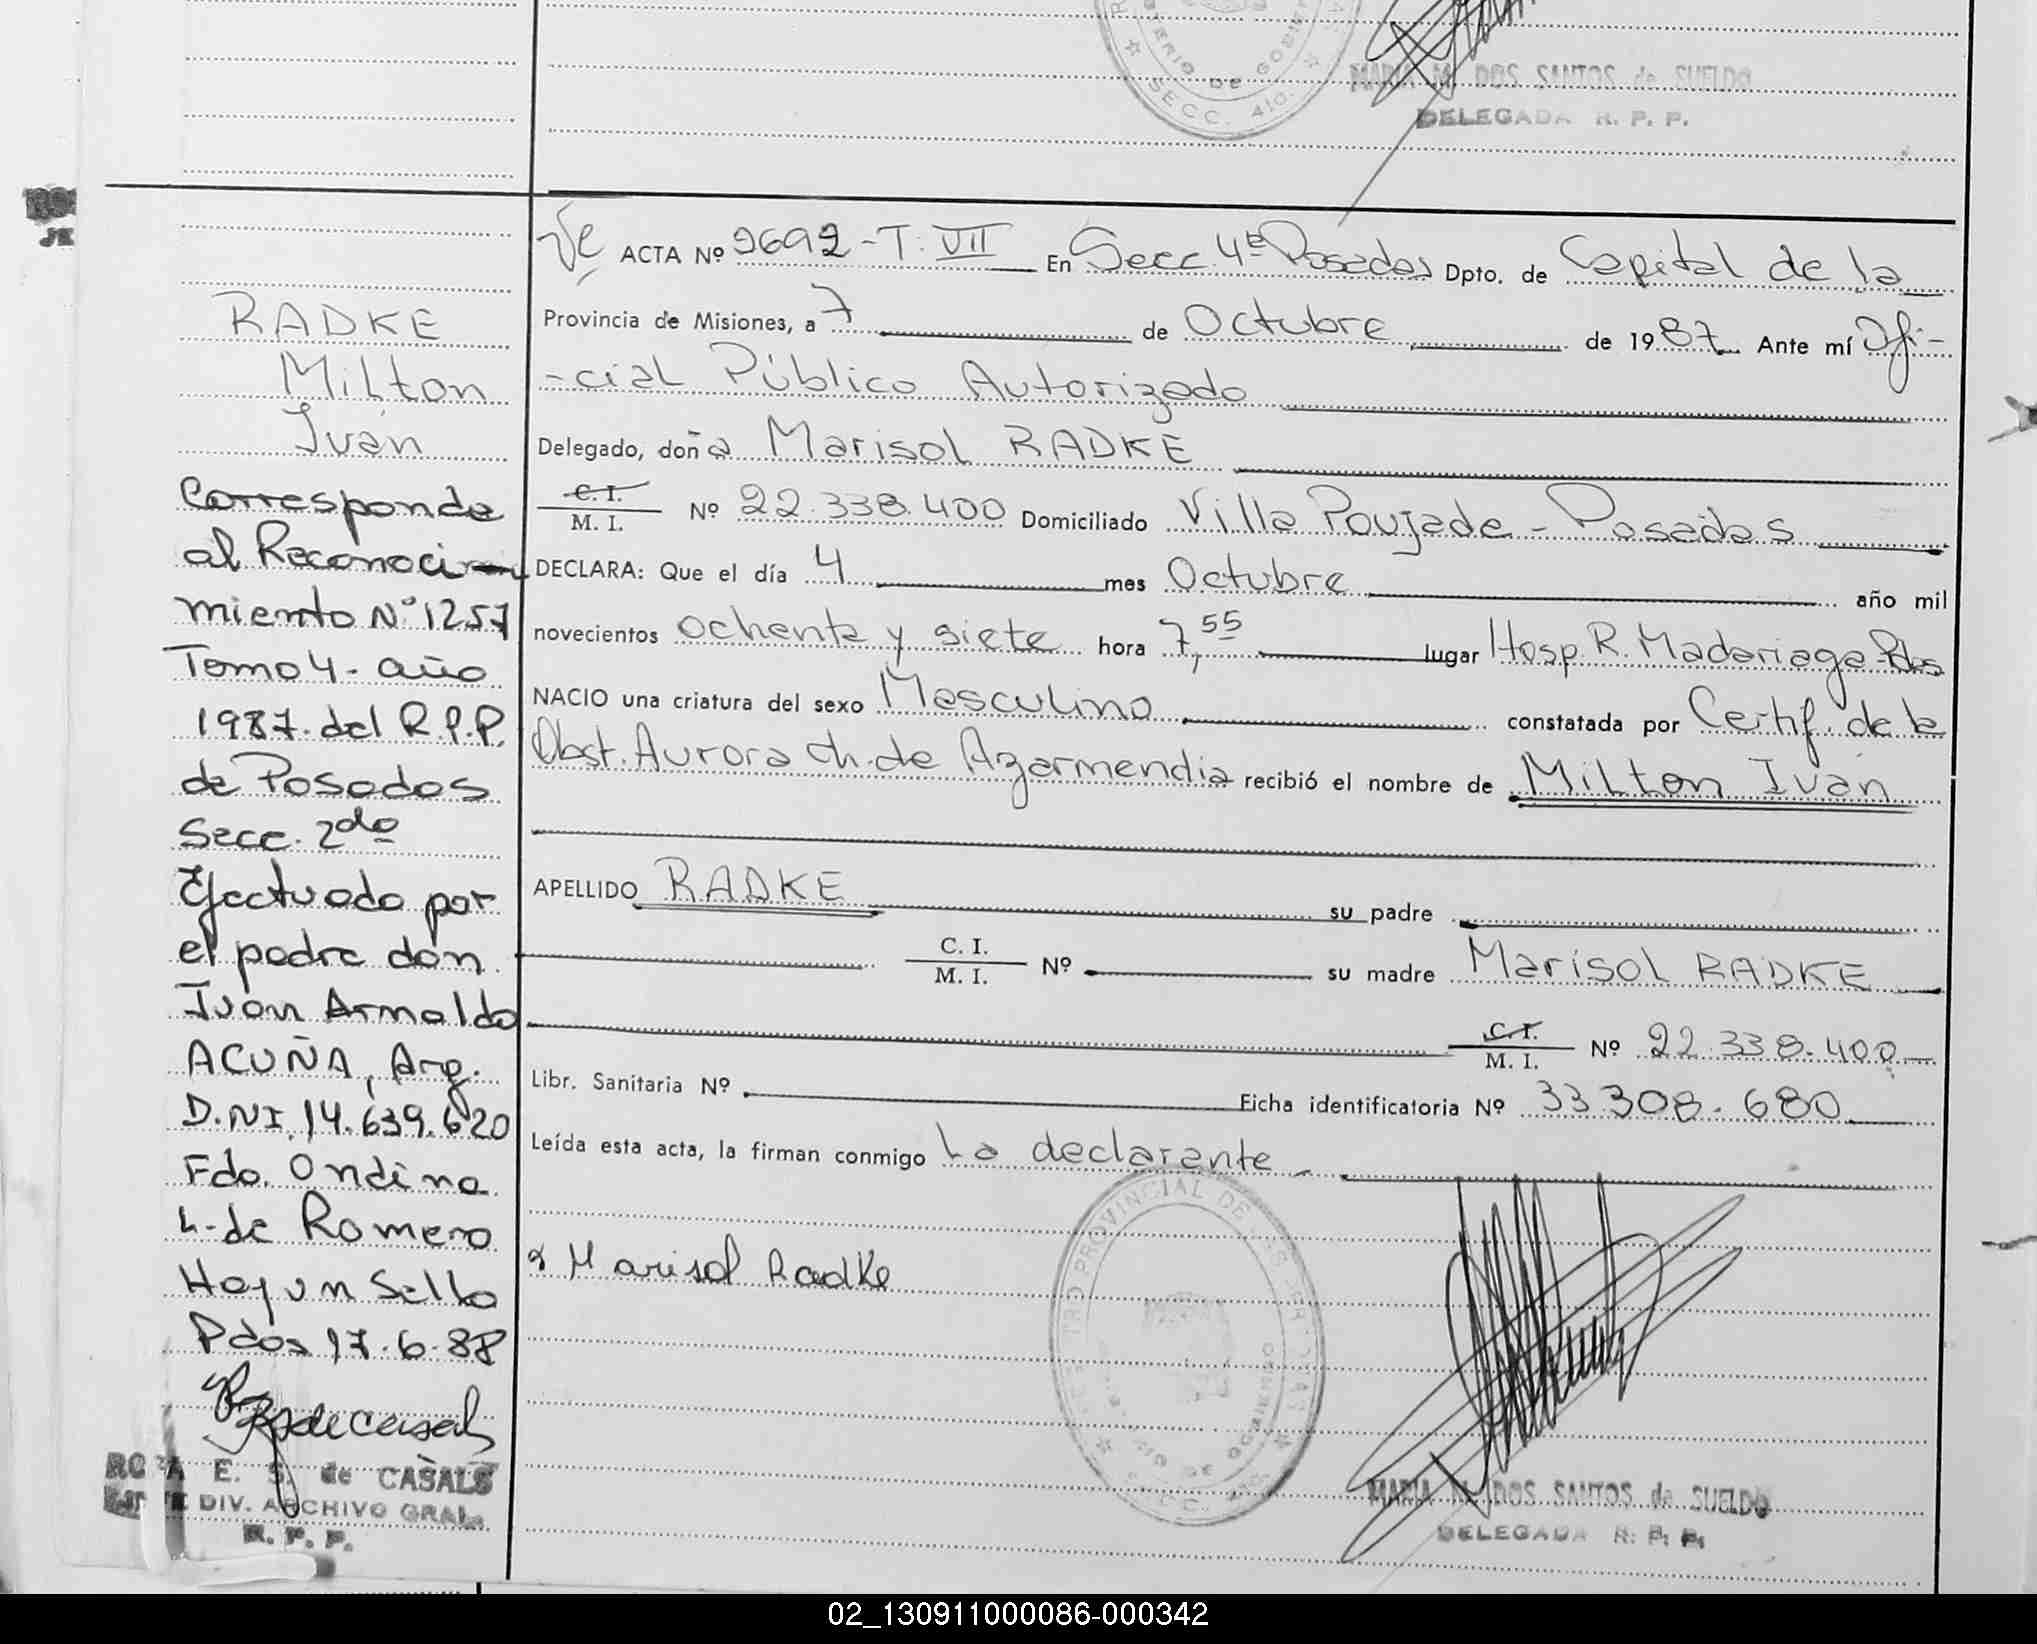 MARIA M. DOS SANTOS de SUELDO
DELEGADA R. P. P.
SECC. 4ta.
RADKE
Milton
Iván
Corresponde
al Reconoci-
miento Nº 1257
Tomo 4- año
1987. del R.P.P.
de Posadas
Secc. 2do
Efectuado por
el padre don
Iván Arnoldo
ACUÑA, Arg.
D.N.I. 14.639.620
Fdo. Ondina
L. de Romero
Hay un Sello
Pdas 17-6-88
ROSA E. S. de CASALS
JEFE DIV. ARCHIVO GRAL.
R. P. P.
ACTA Nº 2692 - T: VII En Secc 4ta Posadas Dpto. de Capital de la
Provincia de Misiones, a 7 de Octubre de 1987 Ante mí Ofi-
-cial Público Autorizado
Delegado, doña Marisol RADKE
C. I.
M. I. Nº 22.338.400 Domiciliado Villa Poujade - Posadas
DECLARA: Que el día 4 mes Octubre año mil
novecientos ochenta y siete hora 7,55 lugar Hosp R. Madariaga-Pdas
NACIO una criatura del sexo Masculino constatada por Certif. de la
Obst. Aurora Ch. de Azarmendia recibió el nombre de Milton Ivan
APELLIDO RADKE su padre
C. I.
M. I. Nº su madre Marisol RADKE
C. I.
M. I. Nº 22.338.400
Libr. Sanitaria Nº Ficha identificatoria Nº 33.308.680
Leída esta acta, la firman conmigo La declarante
x Marisol Radke
MARIA M. DOS SANTOS de SUELDO
DELEGADA R. P. P.
02_130911000086-000342